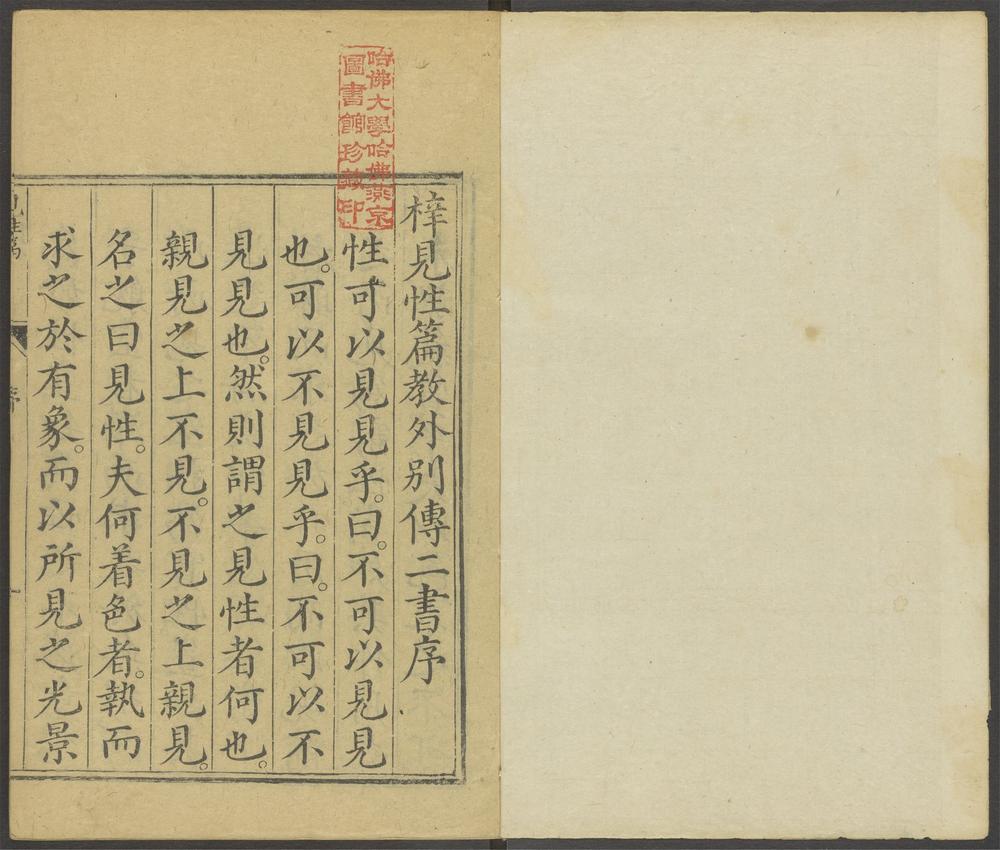 梓見性篇教外別傳二書序
性可以見見乎。曰。不可以見見
也。可以不見見乎。曰。不可以不
見見也。然則謂之見性者何也。
親見之上不見。不見之上親見。
名之曰見性。夫何着色者。執而
求之於有象。而以所見之光景
見性篇
序
一
哈佛大學哈佛燕京
圖書館珍藏印